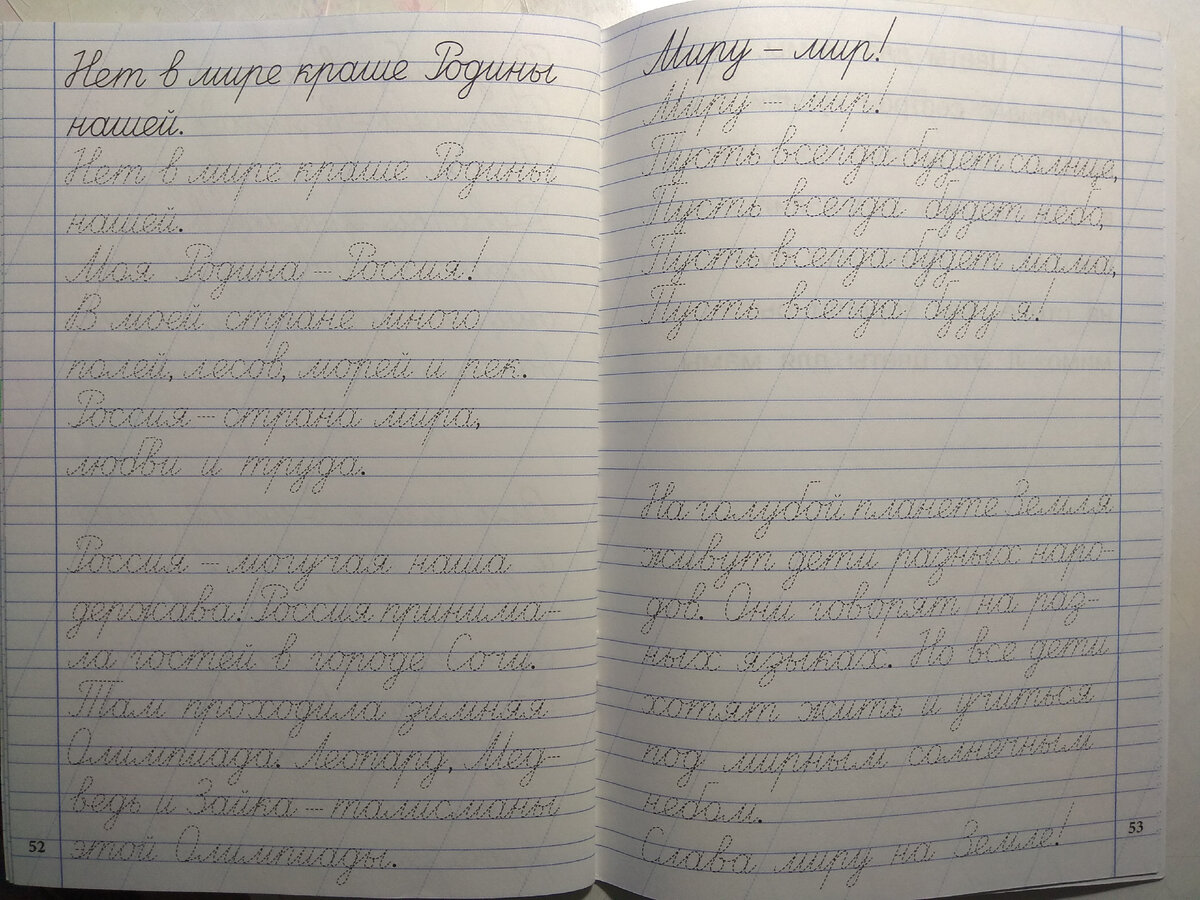 Нет в мире краше Родины
нашей.
Нет в мире краше Родины
нашей.
Моя Родина – Россия!
В моей стране много
полей, лесов, морей и рек.
Россия – страна мира,
любви и труда.
Россия – могучая наша
держава! Россия принима-
ла гостей в городе Сочи.
Там проходила зимняя
Олимпиада. Леопард, Мед-
ведь и Зайка – талисманы
этой Олимпиады.
52
Миру – мир!
Миру – мир!
Пусть всегда будет солнце,
Пусть всегда будет небо,
Пусть всегда будет мама,
Пусть всегда буду я!
На голубой планете Земля
живут дети разных наро-
дов. Они говорят на раз-
ных языках. Но все дети
хотят жить и учиться
под мирным солнечным
небом.
Слава миру на Земле!
53